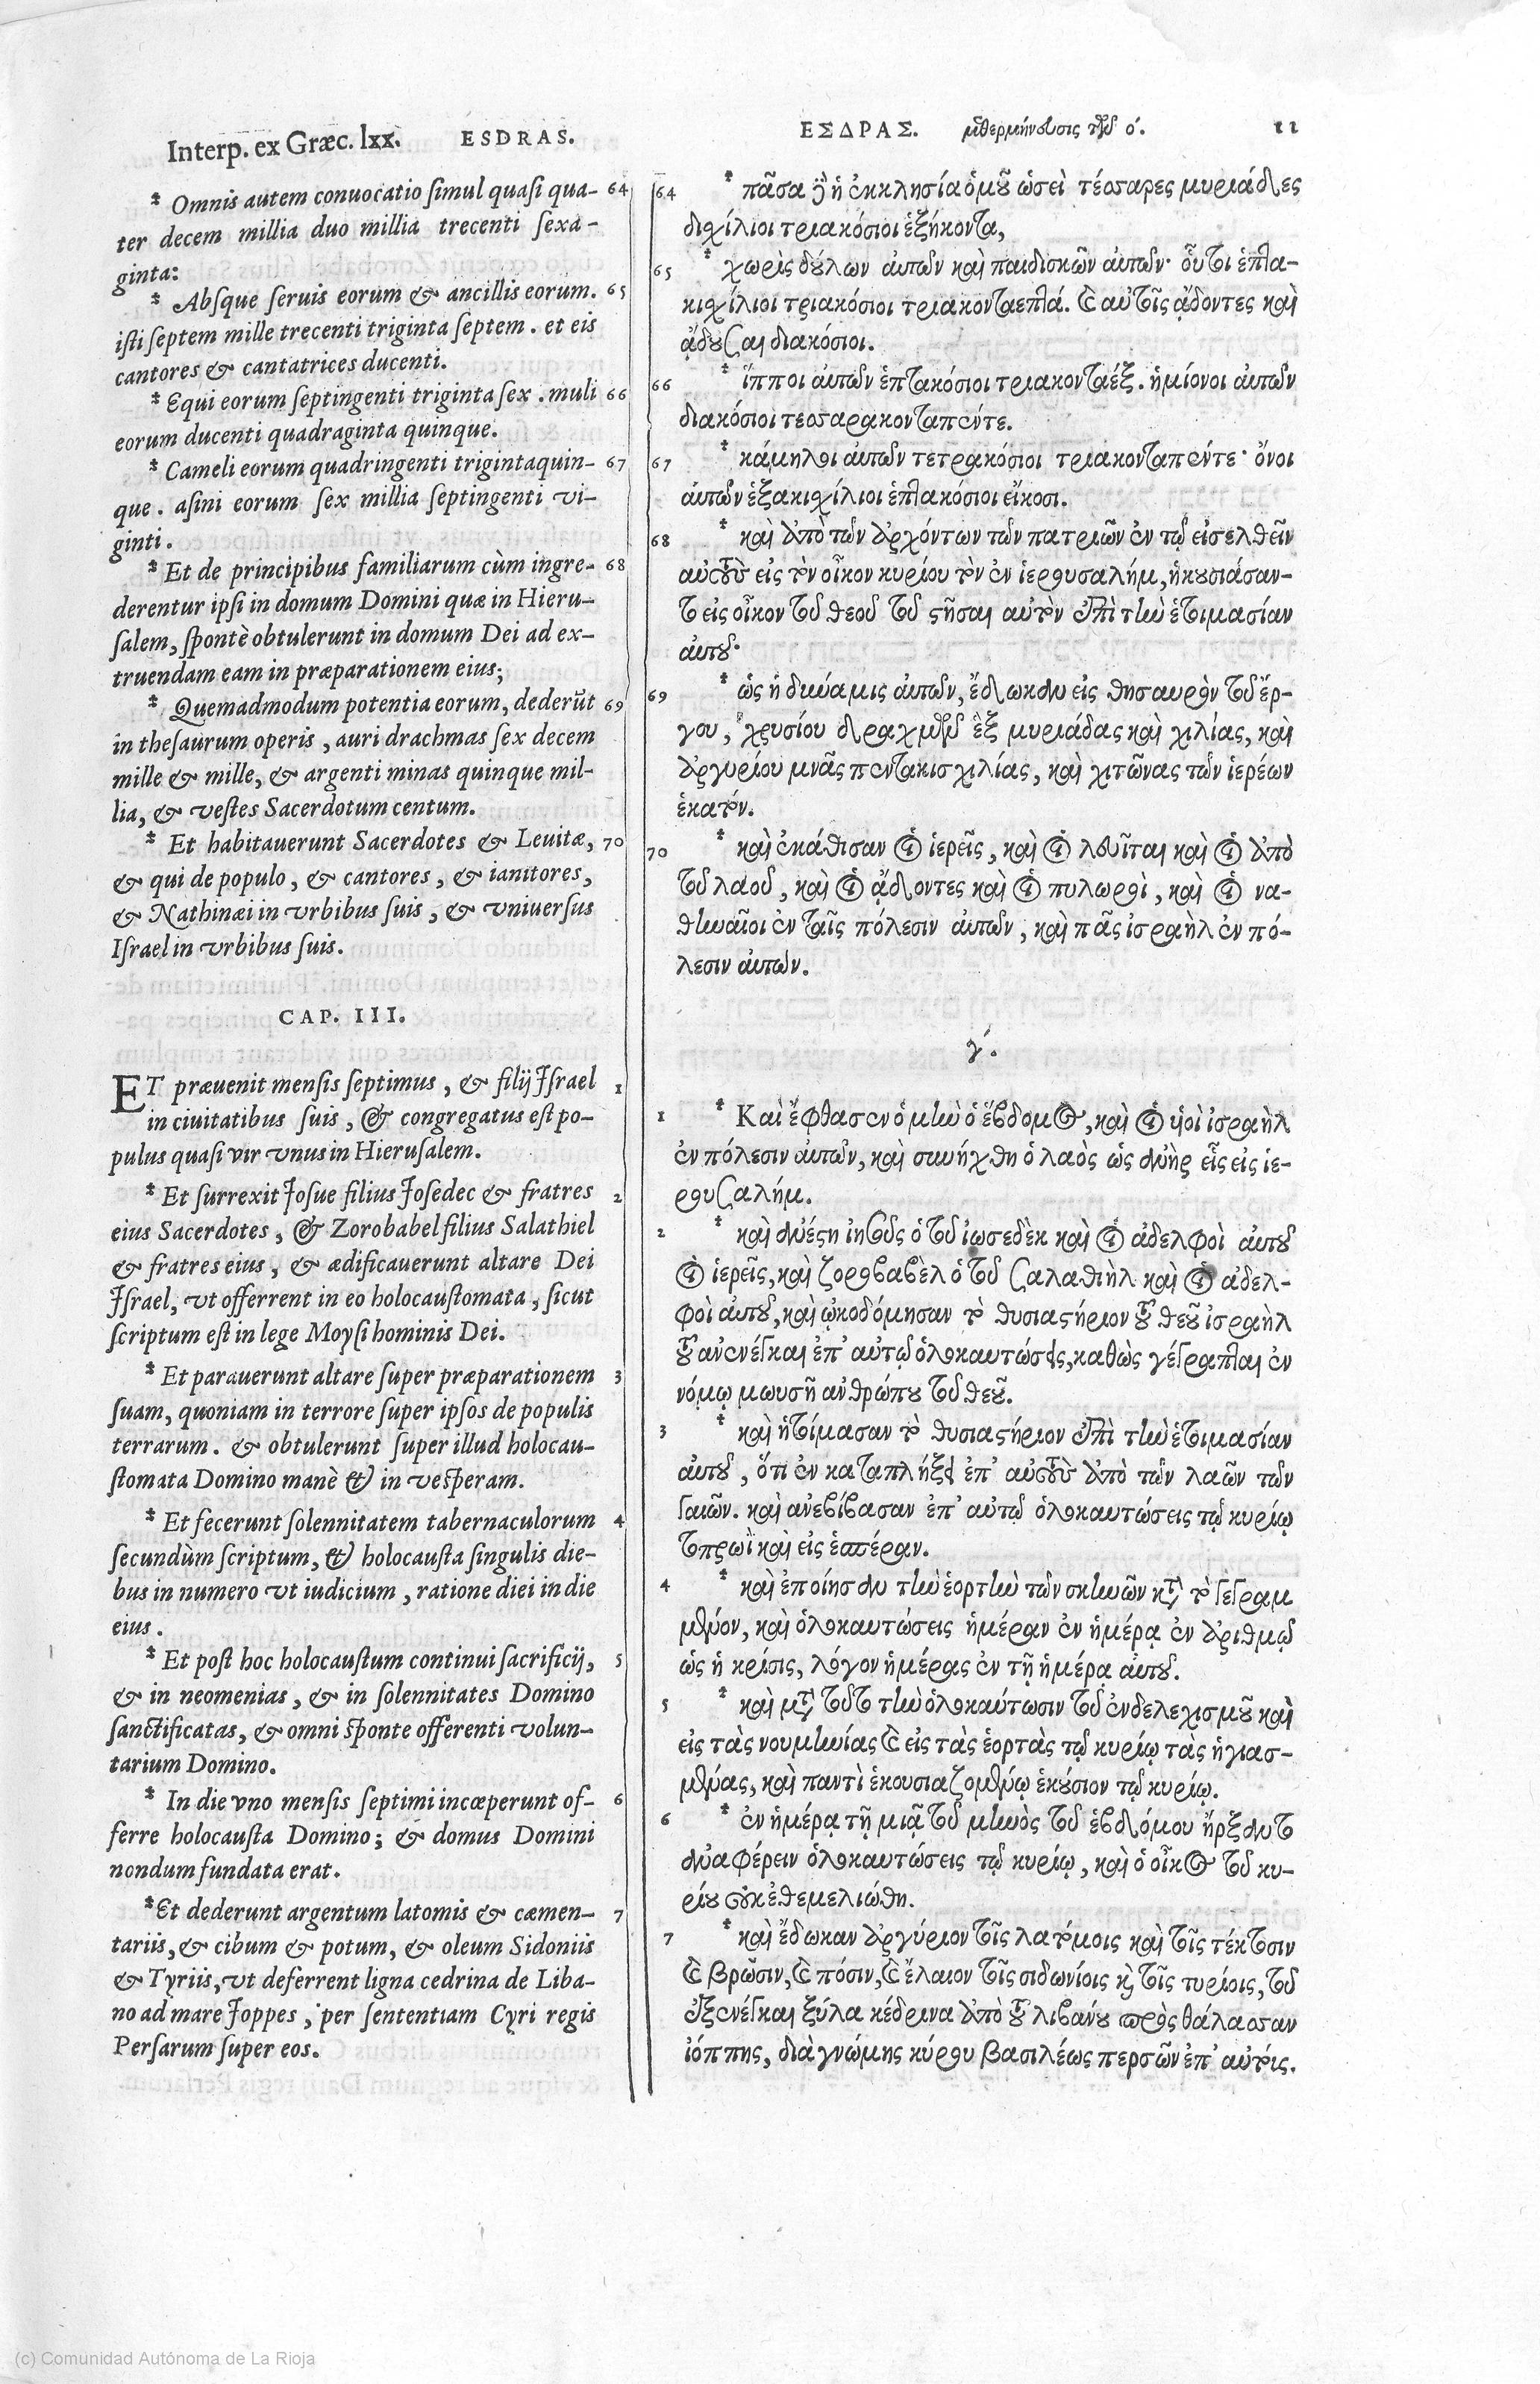 Interp. ex Græc. lxx. ESDRAS.
* Omnis autem conuocatio simul quasi qua- 64
ter decem millia duo millia trecenti sexa-
ginta:
* Absque seruis eorum & ancillis eorum. 65
isti septem mille trecenti triginta septem. et eis
cantores & cantatrices ducenti.
* Equi eorum septingenti triginta sex. muli 66
eorum ducenti quadraginta quinque.
* Cameli eorum quadringenti trigintaquin- 67
que. asini eorum sex millia septingenti vi-
ginti.
* Et de principibus familiarum cùm ingre- 68
derentur ipsi in domum Domini quæ in Hieru-
salem, spontè obtulerunt in domum Dei ad ex-
truendam eam in præparationem eius;
* Quemadmodum potentia eorum, dederūt 69
in thesaurum operis, auri drachmas sex decem
mille & mille, & argenti minas quinque mil-
lia, & vestes Sacerdotum centum.
* Et habitauerunt Sacerdotes & Leuitæ, 70
& qui de populo, & cantores, & ianitores,
& Nathinæi in vrbibus suis, & vniuersus
Israel in vrbibus suis.
CAP. III.
ET præuenit mensis septimus, & filij Israel 1
in ciuitatibus suis, & congregatus est po-
pulus quasi vir vnus in Hierusalem.
* Et surrexit Josue filius Josedec & fratres 2
eius Sacerdotes, & Zorobabel filius Salathiel
& fratres eius, & ædificauerunt altare Dei
Israel, vt offerrent in eo holocaustomata, sicut
scriptum est in lege Moysi hominis Dei.
* Et parauerunt altare super præparationem 3
suam, quoniam in terrore super ipsos de populis
terrarum. & obtulerunt super illud holocau-
stomata Domino manè & in vesperam.
* Et fecerunt solennitatem tabernaculorum 4
secundùm scriptum, & holocausta singulis die-
bus in numero vt iudicium, ratione diei in die
eius.
* Et post hoc holocaustum continui sacrificij, 5
& in neomenias, & in solennitates Domino
sanctificatas, & omni sponte offerenti volun-
tarium Domino.
* In die vno mensis septimi incœperunt of- 6
ferre holocausta Domino; & domus Domini
nondum fundata erat.
* Et dederunt argentum latomis & cæmen- 7
tariis, & cibum & potum, & oleum Sidoniis
& Tyriis, vt deferrent ligna cedrina de Liba-
no ad mare Joppes, per sententiam Cyri regis
Persarum super eos.
ΕΣΔΡΑΣ. μεθερμήνευσις τῶν ο΄. 11
64 * πᾶσα δὲ ἡ ἐκκλησία ὁμοῦ ὡσεὶ τέσσαρες μυριάδες
διχίλιοι τριακόσιοι ἑξήκοντα,
65 * χωρὶς δούλων αὐτῶν καὶ παιδισκῶν αὐτῶν· οὗτοι ἑπτα-
κιχίλιοι τριακόσιοι τριακονταεπτά. καὶ αὐτοῖς ᾄδοντες καὶ
ᾄδουσαι διακόσιοι.
66 * ἵπποι αὐτῶν ἑπτακόσιοι τριακονταέξ. ἡμίονοι αὐτῶν
διακόσιοι τεσσαρακονταπέντε.
67 * κάμηλοι αὐτῶν τετρακόσιοι τριακονταπέντε· ὄνοι
αὐτῶν ἑξακιχίλιοι ἑπτακόσιοι εἴκοσι.
68 * καὶ ἀπὸ τῶν ἀρχόντων τῶν πατριῶν ἐν τῷ εἰσελθεῖν
αὐτοὺς εἰς τὸν οἶκον κυρίου τὸν ἐν ἱερουσαλήμ, ἡκουσιάσαν-
το εἰς οἶκον τοῦ θεοῦ τοῦ στῆσαι αὐτὸν ἐπὶ τὴν ἑτοιμασίαν
αὐτοῦ·
69 * ὡς ἡ δύναμις αὐτῶν, ἔδωκαν εἰς θησαυρὸν τοῦ ἔρ-
γου, χρυσίου δραχμῶν ἓξ μυριάδας καὶ χιλίας, καὶ
ἀργυρίου μνᾶς πεντακισχιλίας, καὶ χιτῶνας τῶν ἱερέων
ἑκατόν.
70 * καὶ ἐκάθισαν οἱ ἱερεῖς, καὶ οἱ λευῖται καὶ οἱ ἀπὸ
τοῦ λαοῦ, καὶ οἱ ᾄδοντες καὶ οἱ πυλωροὶ, καὶ οἱ να-
θηναῖοι ἐν ταῖς πόλεσιν αὐτῶν, καὶ πᾶς ἰσραὴλ ἐν πό-
λεσιν αὐτῶν.
γ΄.
1 * Καὶ ἔφθασεν ὁ μὴν ὁ ἕβδομος, καὶ οἱ υἱοὶ ἰσραὴλ
ἐν πόλεσιν αὐτῶν, καὶ συνήχθη ὁ λαὸς ὡς ἀνὴρ εἷς εἰς ἱε-
ρουσαλήμ.
2 * καὶ ἀνέστη ἰησοῦς ὁ τοῦ ἰωσεδὲκ καὶ οἱ ἀδελφοὶ αὐτοῦ
οἱ ἱερεῖς, καὶ ζοροβαβὲλ ὁ τοῦ σαλαθιὴλ καὶ οἱ ἀδελ-
φοὶ αὐτοῦ, καὶ ᾠκοδόμησαν τὸ θυσιαστήριον τοῦ θεοῦ ἰσραὴλ
τοῦ ἀνενέγκαι ἐπ' αὐτῷ ὁλοκαυτώσεις, καθὼς γέγραπται ἐν
νόμῳ μωυσῆ ἀνθρώπου τοῦ θεοῦ.
3 * καὶ ἡτοίμασαν τὸ θυσιαστήριον ἐπὶ τὴν ἑτοιμασίαν
αὐτοῦ, ὅτι ἐν καταπλήξει ἐπ' αὐτοὺς ἀπὸ τῶν λαῶν τῶν
γαιῶν. καὶ ἀνεβίβασαν ἐπ' αὐτῷ ὁλοκαυτώσεις τῷ κυρίῳ
τοπρωῒ καὶ εἰς ἑσπέραν.
4 * καὶ ἐποίησαν τὴν ἑορτὴν τῶν σκηνῶν κατὰ τὸ γεγραμ
μένον, καὶ ὁλοκαυτώσεις ἡμέραν ἐν ἡμέρᾳ ἐν ἀριθμῷ
ὡς ἡ κρίσις, λόγον ἡμέρας ἐν τῇ ἡμέρᾳ αὐτοῦ.
5 * καὶ μετὰ τοῦτο τὴν ὁλοκαύτωσιν τοῦ ἐνδελεχισμοῦ καὶ
εἰς τὰς νουμηνίας καὶ εἰς τὰς ἑορτὰς τῷ κυρίῳ τὰς ἡγιασ-
μένας, καὶ παντὶ ἑκουσιαζομένῳ ἑκούσιον τῷ κυρίῳ.
6 * ἐν ἡμέρᾳ τῇ μιᾷ τοῦ μηνὸς τοῦ ἑβδόμου ἤρξαντο
ἀναφέρειν ὁλοκαυτώσεις τῷ κυρίῳ, καὶ ὁ οἶκος τοῦ κυ-
ρίου οὐκ ἐθεμελιώθη.
7 * καὶ ἔδωκαν ἀργύριον τοῖς λατόμοις καὶ τοῖς τέκτοσιν
καὶ βρῶσιν, καὶ πόσιν, καὶ ἔλαιον τοῖς σιδωνίοις καὶ τοῖς τυρίοις, τοῦ
ἐξενέγκαι ξύλα κέδρινα ἀπὸ τοῦ λιβάνου πρὸς θάλασσαν
ἰόππης, διὰ γνώμης κύρου βασιλέως περσῶν ἐπ' αὐτοῖς.
(c) Comunidad Autónoma de La Rioja